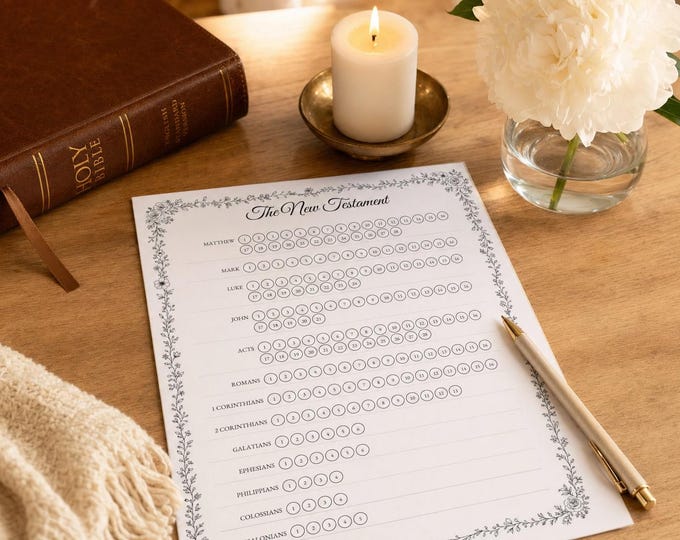 HOLY BIBLE
ENGLISH
STANDARD
VERSION
The New Testament
MATTHEW 1 2 3 4 5 6 7 8 9 10 11 12 13 14 15 16
17 18 19 20 21 22 23 24 25 26 27 28
MARK 1 2 3 4 5 6 7 8 9 10 11 12 13 14 15 16
LUKE 1 2 3 4 5 6 7 8 9 10 11 12 13 14 15 16
17 18 19 20 21 22 23 24
JOHN 1 2 3 4 5 6 7 8 9 10 11 12 13 14 15 16
17 18 19 20 21
ACTS 1 2 3 4 5 6 7 8 9 10 11 12 13 14 15 16
17 18 19 20 21 22 23 24 25 26 27 28
ROMANS 1 2 3 4 5 6 7 8 9 10 11 12 13 14 15 16
1 CORINTHIANS 1 2 3 4 5 6 7 8 9 10 11 12 13 14 15 16
2 CORINTHIANS 1 2 3 4 5 6 7 8 9 10
GALATIANS 1 2 3 4 5 6
EPHESIANS 1 2 3 4 5 6
PHILIPPIANS 1 2 3 4
COLOSSIANS 1 2 3 4
ALONIANS 1 2 3 4 5